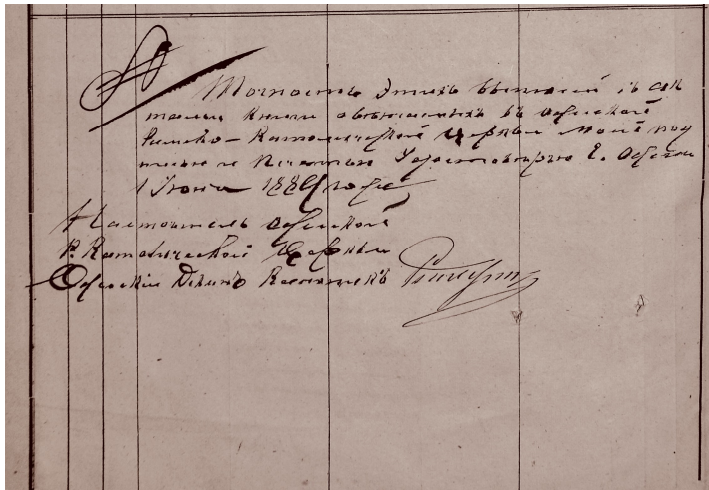 Точность этихъ выписей съ ак
тами книги обвѣнчанныхъ въ Одесской
Римско-Католической Церкви моей под
писью и печатью удостовѣряю Г. Одесса
1 Юня 188 года
Настоятель Одесской
Р. Католической Церкви
Одесскій Деканъ Каноникъ